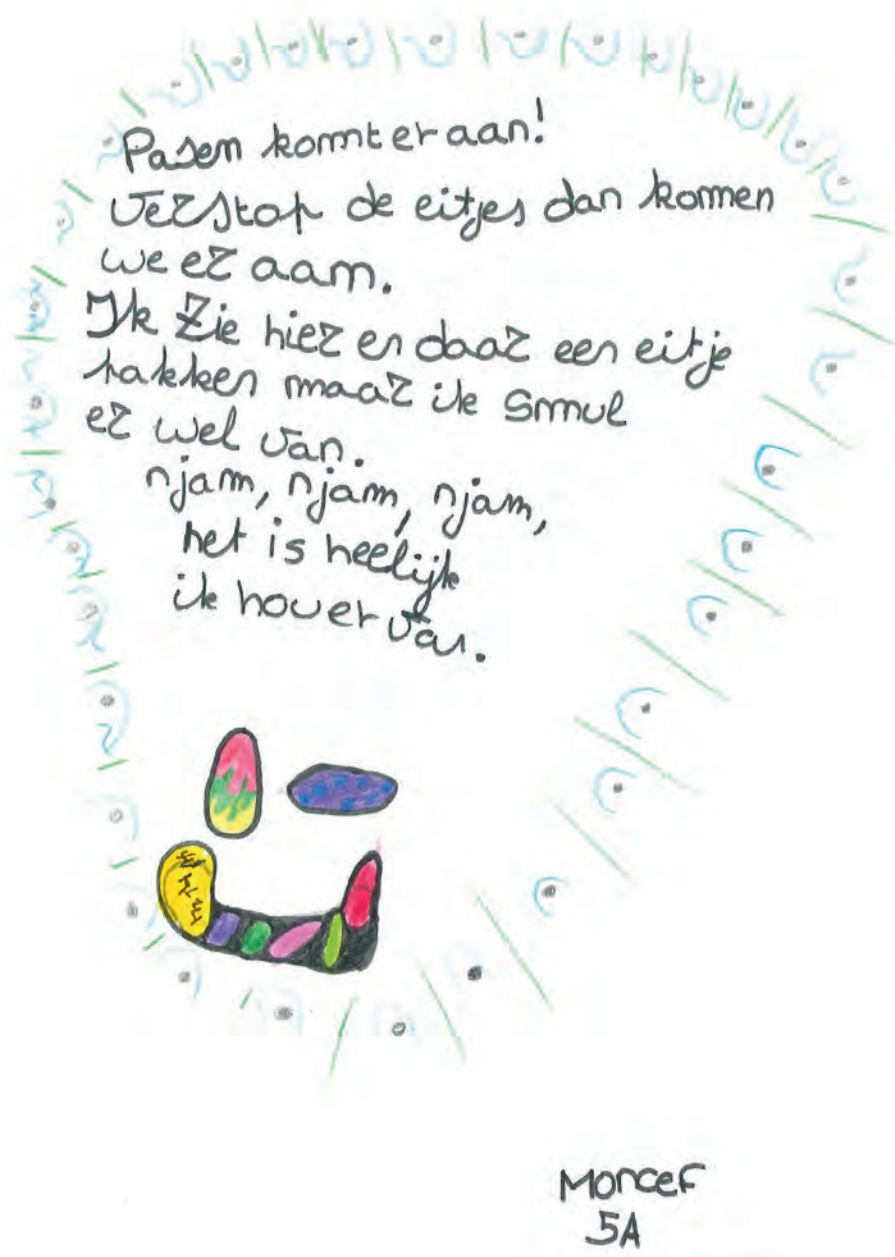 Pasen komt er aan!
Verstop de eitjes dan komen
we er aan.
Ik zie hier en daar een eitje
hakken maar ik smul
er wel van.
njam, njam, njam,
het is heelijk
ik hou er van.
Moncef
5A